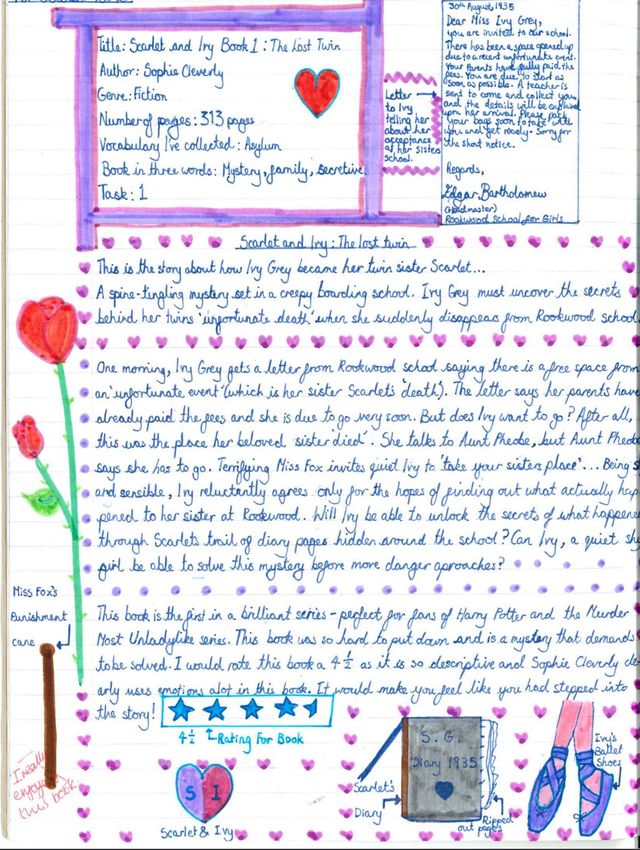 Title: Scarlet and Ivy Book 1 : The Lost Twin
Author: Sophie Cleverly
Genre: Fiction
Number of pages: 313 pages
Vocabulary I've collected : Asylum
Book in three words: Mystery, family, secretive
Task: 1
Letter
to Ivy
telling her
about her
acceptance
at her sisters
school.
30th August, 1935
Dear Miss Ivy Grey,
you are invited to our school.
There has been a space opened up
due to a recent unfortunate event.
Your Parents have fully paid the
fees. You are due to start as
soon as possible. A teacher is
sent to come and collect you
and the details will be explained
upon her arrival. Please pack
your bags soon to take with
you and get ready. Sorry for
the short notice.
Regards,
Edgar Bartholomew
(Headmaster)
Rookwood School for Girls
Scarlet and Ivy : The lost twin
This is the story about how Ivy Grey became her twin sister Scarlet...
A spine-tingling mystery set in a creepy boarding school. Ivy Grey must uncover the secrets
behind her twins 'unfortunate death' when she suddenly disappears from Rookwood school.
One morning, Ivy Grey gets a letter from Rookwood school saying there is a free space from
an 'unfortunate event' (which is her sister Scarlets 'death'). The letter says her parents have
already paid the fees and she is due to go very soon. But does Ivy want to go? After all,
this was the place her beloved sister 'died'. She talks to Aunt Pheobe, but Aunt Pheobe
says she has to go. Terrifying Miss Fox invites quiet Ivy to 'take your sisters place'... Being s
and sensible, Ivy reluctantly agrees only for the hopes of finding out what actually hap
pened to her sister at Rookwood. Will Ivy be able to unlock the secrets of what happene
through Scarlets trail of diary pages hidden around the school? Can Ivy, a quiet sh
girl be able to solve this mystery before more danger aproaches?
This book is the first in a brilliant series - perfect for fans of Harry Potter and the Murder
Most Unladylike series. This book was so hard to put down and is a mystery that demands
to be solved. I would rate this book a 4 ½ as it is so descriptive and Sophie Cleverly cle
arly uses emotions alot in this book. It would make you feel like you had stepped into
the story!
4 ½ Rating For Book
Miss Fox's
Punishment
cane
I really
enjoyed
this book
S I
Scarlet & Ivy
S. G.
Diary 1935
Scarlet's
Diary
Ripped
out pages
Ivy's
Ballet
Shoes